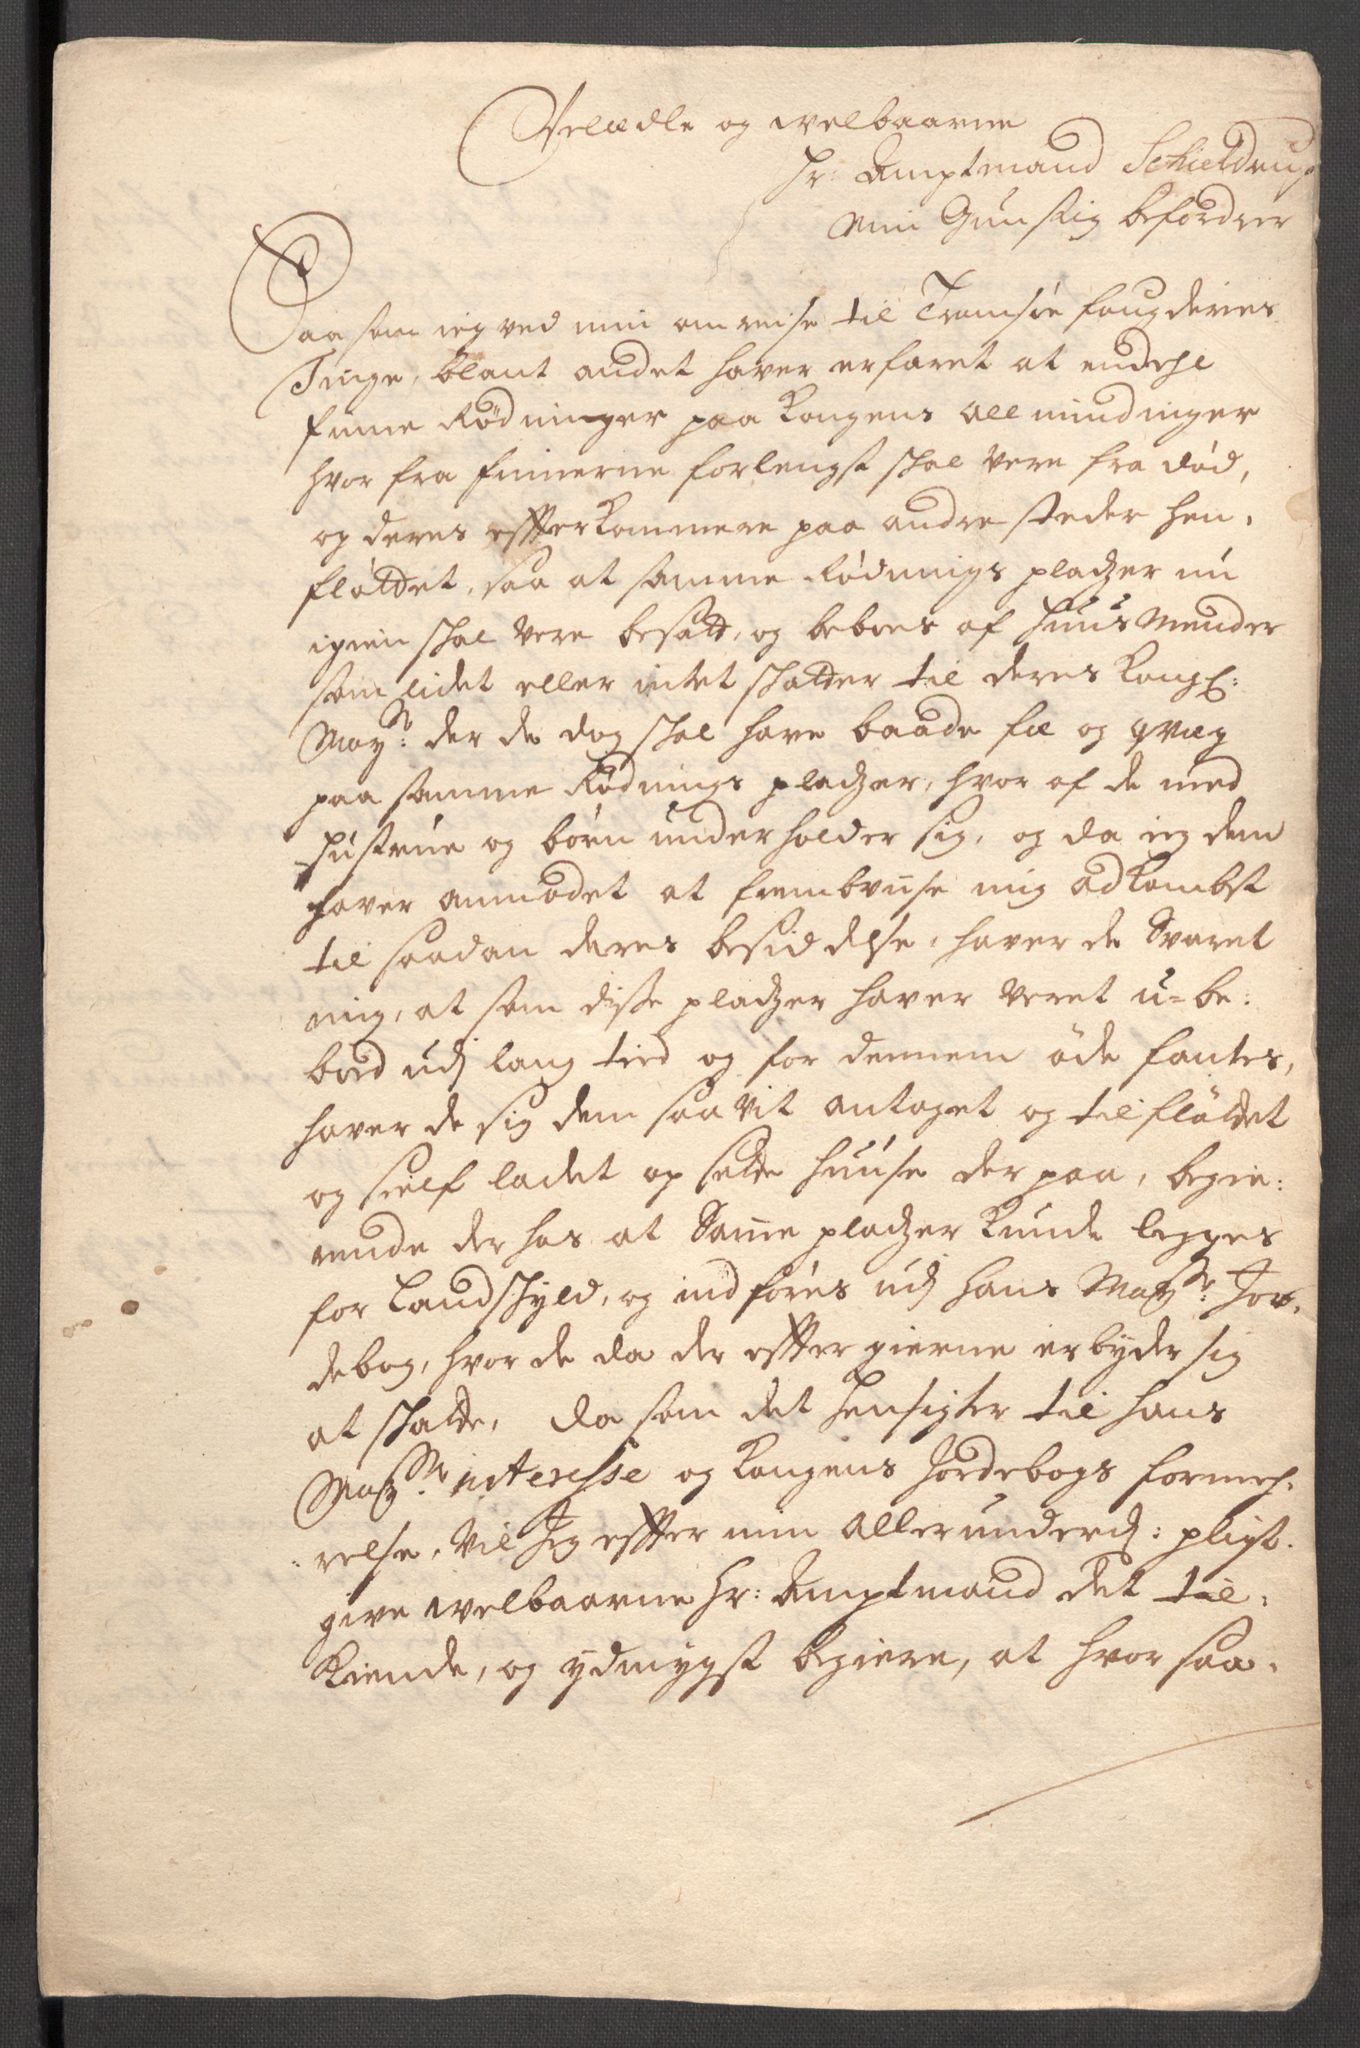 Velædle og welbaarne
Hr: Amptmand Schieldrup
Min Gunstig befordrer
Saasom ieg ved min omreise til Tromsöe fougderies
Tinge, blant andet haver erfaret at endehl
finne Rödninger paa Kongens Allmindinger
hvor fra finnerne forlengst skal vere fra död,
og deres effterkommere paa andre steder hen,
flöttet, saa at samme Rödnings pladzer nu
igien skal vere besatt, og beboes af Huusmender
som lidet eller intet skatter til deres Kongl:
May:tt der de dog skal have baade fæ og qvæg
paa samme Rödnings pladzer, hvor af de med
Hustrue og börn underholder sig, og da ieg dem
haver anmodet at frembviise mig adkombst
til saadan deres besiddelse, haver de Svaret
mig, at som disse pladzer haver veret u-be:
boed udj lang tied og for dennem öde fantes,
haver de sig dem saavit antaget og tilflöttet
og sielf ladet op sette Huuse der paa, begie:
rende der hos at Same pladzer kunde legges
for Landskyld, og indföris udj Hans May:tt Jor,
debog, hvor de da der effter gierne erbyder sig
at skatte, da som det Hensigter til Hans
May:tts interesse og Kongens Jordebogs formeh,
relse, vil Jeg effter min allerunderd: pligt.
give welbaarne Hr: Amptmand det til,
kiende, og ydmygst begiere, at hvor saa,